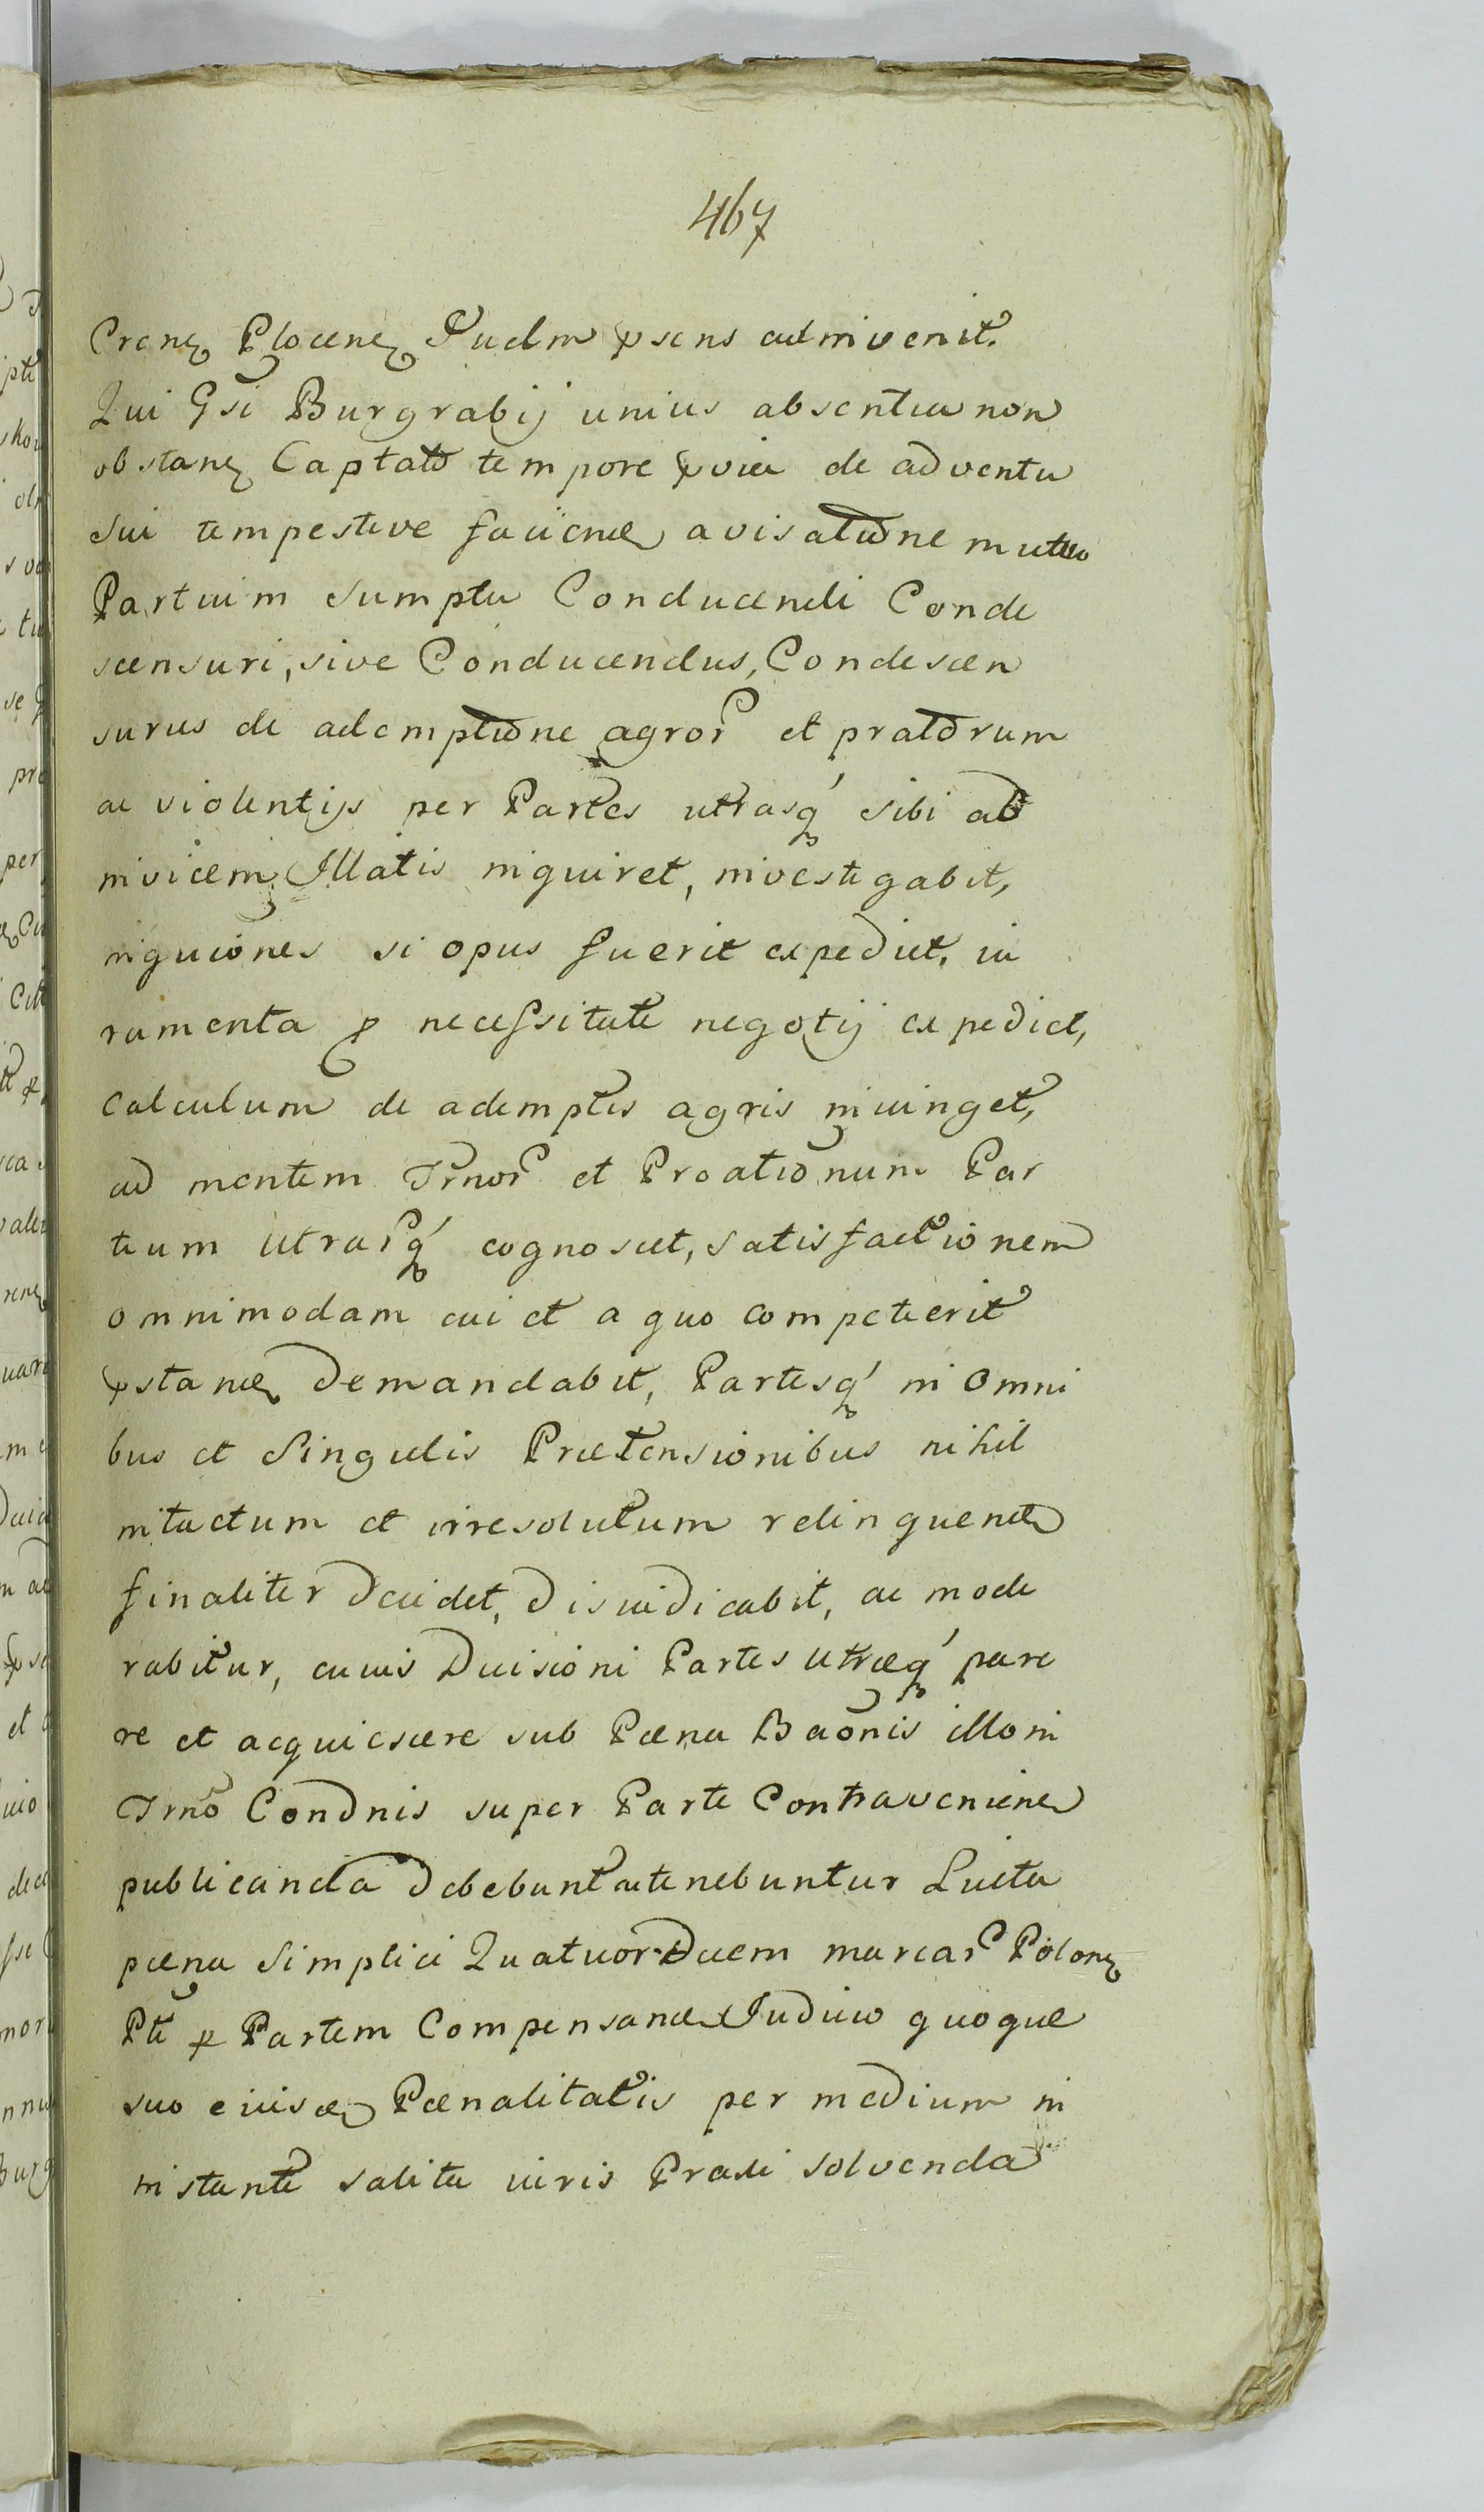 467
Crenẹ Plocenẹ Iudm psens adinvenit.
Qui Gsi Burgrabij unius absentia non
obstanẹ Captato tempore pvia de adventu
sui tempestive faciend avisatione mutuo
Partium sumptu Conducendi Conde
scensuri, sive Conducendus, Condescen
surus de ademptione agror et pratorum
ac violentijs per Partes utrasq́ sibi ad
invicem Illatis inquiret, investigabit,
inquiones si opus fuerit expediet, iu
ramenta p necessitate negotij expediet,
Calculum de ademptis agris iniunget,
ad mentem Irnor et Proationum Par
tium utrarq́ cognoscet, satisfactionem
omnimodam cui et a quo competierit
pstand demandabit, Partesq́ in omni
bus et Singulis Prætensionibus nihil
intactum et irresolutum relinquend
finaliter decidet, diiudicabit, ac mode
rabitur, cuius Decisioni Partes utræq́ pare
re et acquiescere sub Pæna Baõnis illo in
Irno Condnis super Parte Contravenien
publicanda debebunt ac tenebuntur Luita
pæna simplici Quatuor Decem marcar Polonẹ
Pti p Partem Compensand Iudicio quoque
suo eiusd Pænalitatis per medium in
instanti salita iuris Pradi solvenda